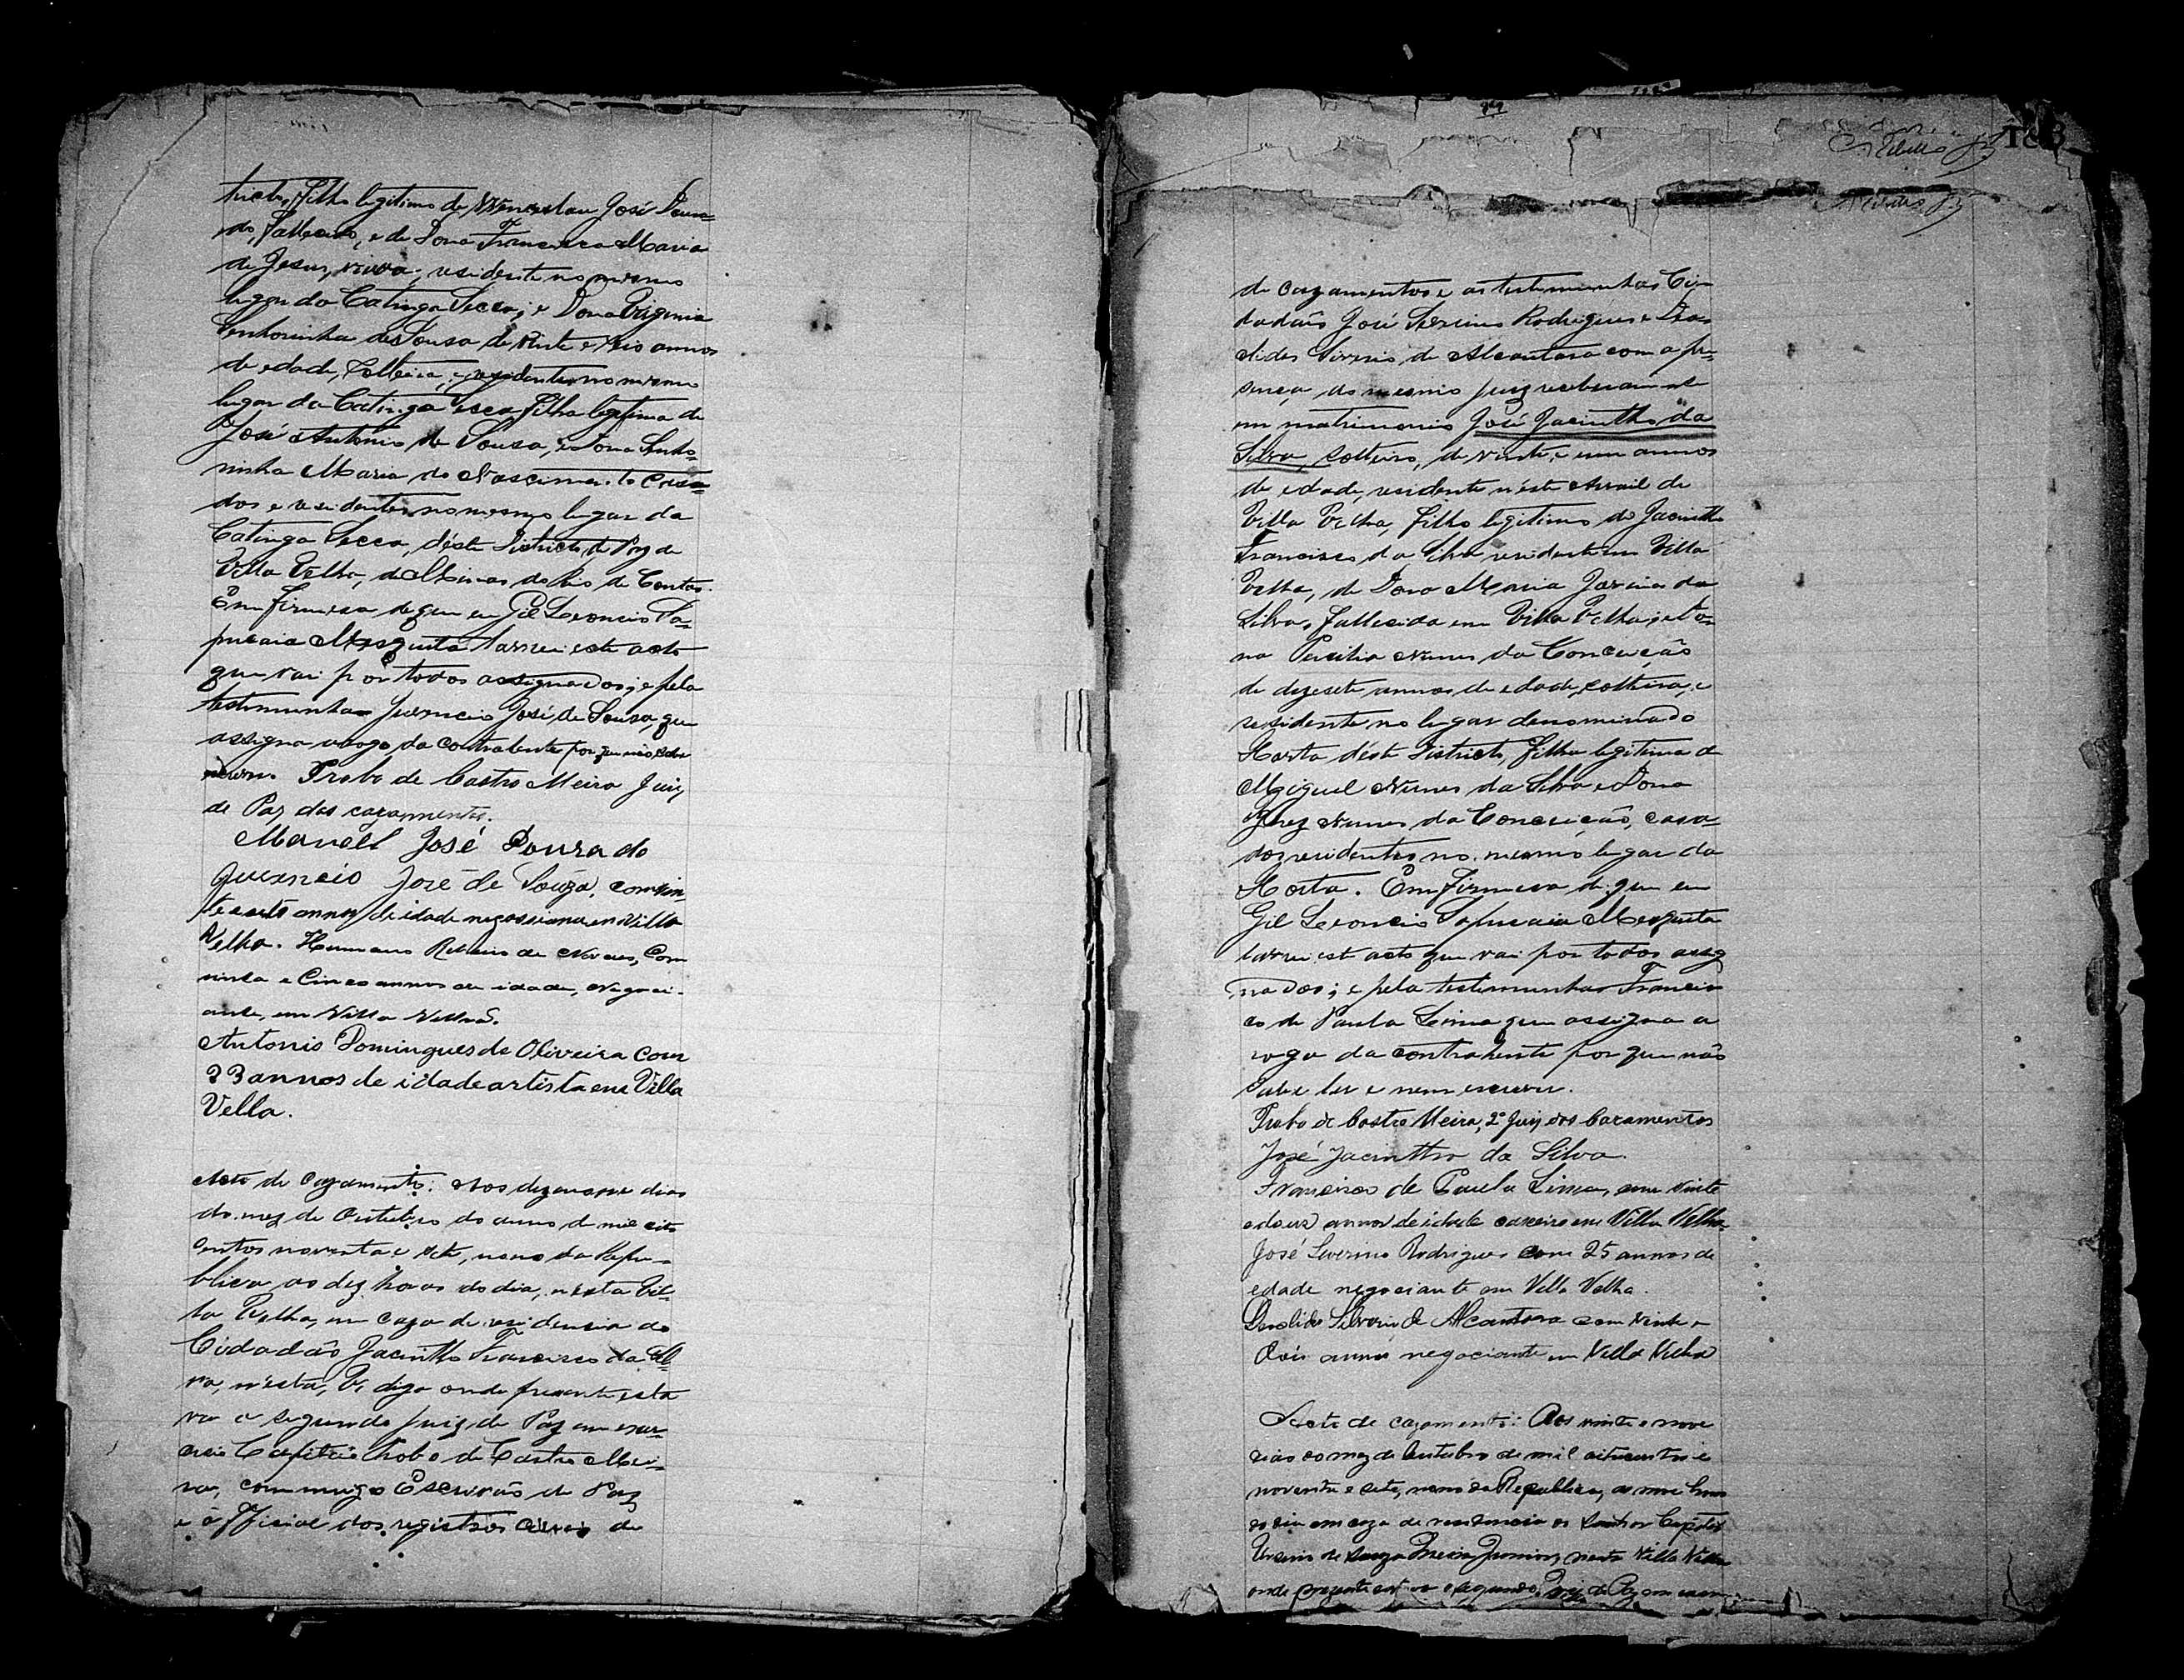 tricto, Filho legitimo de Wenceslau José Doura-
do, Fallecido, e de Dona Francisca Maria
de Jesus, viuva, residente no mesmo
lugar da Catinga Secca; e Dona Virginia
Senhorinha de Sousa de vinte e seis annos
de edade, Solteira, e residente no mesmo
lugar da Catinga Secca Filha legitima de
José Antonio de Sousa, e Dona
ninha Maria do Nascimento Casa-
dos e residentes no mesmo lugar da
Catinga Secca, déste Districto de Paz de
Villa Velha, de Minas do Rio de Contas.
Em firmesa de que eu Gil Leoncio Sa-
pucaia Mesquita lavrei este acto
que vai por todos assignados; e pela
testimunha Juvencio José de Sousa, que
assigna a rogo da contratente por que não sabe
escrever. Probo de Castro Meira Juiz
de Paz dos cazamentos.
Manoel José Dourado
Juvencio José de Souza, com vin-
te e oito annos de idade negossiante em Villa
Velha. Hermano Ribeiro de Novaes, Com
e Cinco annos de idade, Negoci-
ante, em Villa Velha.
Antonio Domingues de Oliveira com
23 annos de idade artista em Villa
Vella.
Acto de Cazamento: Aos dezenove dias
do mez de Outubro do anno de mil oito
centos noventa e sete, nono da Repu-
blica as dez horas do dia, nésta Vil-
la Velha, em caza de residencia do
Cidadão Jacintho Francisco da Sil-
va, n'esta, V. digo onde presente esta
va o segundo Juiz de Paz em exer-
cicio Capitão Probo de Castro Mei-
ra, commigo Escrivão de Paz
e official dos registros civis de
183
de cazamentos e as testimunhas Ci-
dadãos José Severino Rodrigues e Deo-
clides Silverio de Alcantara com a pre-
sença do mesmo juiz receberam-se
em matrimonio José Jacintho da
Silva, solteiro, de vinte e um annos
de edade, residente néste Arraial de
Villa Velha, filho legitimo de Jacintho
Francisco da Silva residente em Villa
Velha, de Dona Maria da
Silva, fallecida em Villa Velha; e Do-
na Nunes da Conceição
de dezesete annos de edade, solteira, e
residente no lugar denominado
Horta déste Districto, filha legitima de
Miguel Nunes da Silva e Dona
Ignez Nunes da Conceição, casa-
dos residentes no mesmo lugar da
Horta. Em firmesa de que eu
Gil Leoncio Sapucaia Mesquita
lavrei este acto que vai por todos assig
nados; e pela testimunha Francis
co de Paula Lima que assigna a
rogo da contrahente por que não
sabe ler e nem escrever.
Probo de Castro Meira, 2º Juiz dos Cazamentos
José Jacinttho da Silva.
Francisco de Paula Lima, com vinte
e dous annos de idade caxeiro em Villa Velha.
José Severino Rodrigues com 25 annos de
edade negociante em Villa Velha.
Deoclides Silverio de Alcantara com vinte e
dois annos negociante em Villa Velha
Acto de cazamento: Aos vinte e nove
dias do mez de Outubro de mil oitocentos e
noventa e sete, nono da Republica, as nove horas
do dia em caza de residencia do Senhor Capitão
de Souza Meira Junior, nesta Villa Velha
onde presente estava o segundo Juiz de Paz em exer